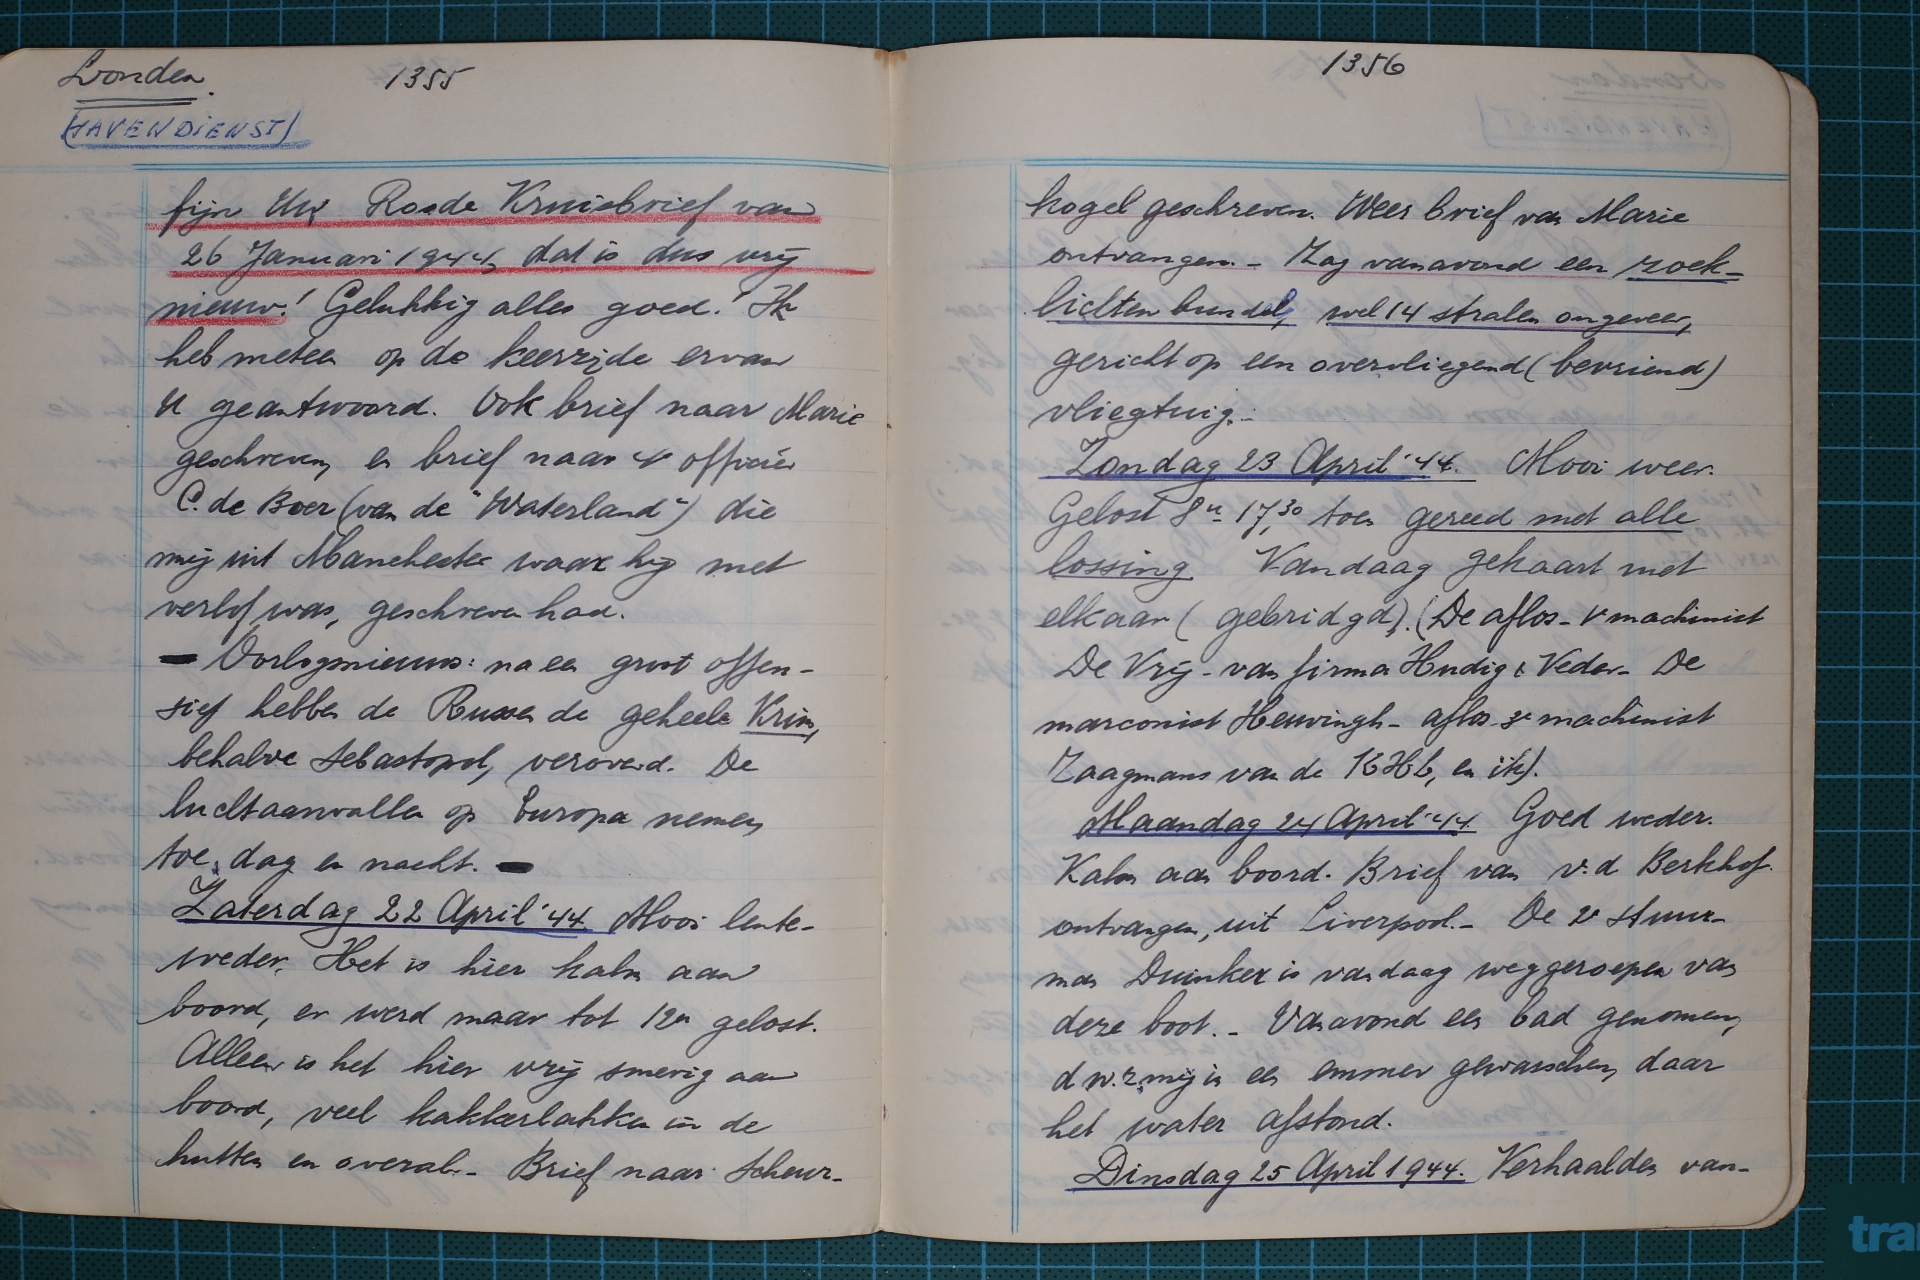 Londen.
1355
(HAVENDIENST)
fijn Uw Roode Kruisbrief van
26 Januari 1944, dat is dus vrij
nieuw! Gelukkig alles goed! Ik
heb meteen op de keerzijde ervan
U geantwoord. Ook brief naar Marie
geschreven, en brief naar 4e officier
C. de Boer (van de "Waterland") die
mij uit Manchester waar hij met
verlof was, geschreven had.
— Oorlogsnieuws: na een groot offen-
sief hebben de Russen de geheele Krim,
behalve Sebastopol, veroverd. De
luchtaanvallen op Europa nemen
toe, dag en nacht. —
Zaterdag 22 April '44. Mooi lente-
weder. Het is hier kalm aan
boord, er werd maar tot 12u gelost.
Alleen is het hier vrij smerig aan
boord, veel kakkerlakken in de
hutten en overal.- Brief naar Scheur-
1356
kogel geschreven. Weer brief van Marie
ontvangen.- Zag vanavond een zoek-
lichten bundel, wel 14 stralen ongeveer,
gericht op een overvliegend (bevriend)
vliegtuig.-
Zondag 23 April '44. Mooi weer.
Gelost 8u- 17,30 toen gereed met alle
lossing. Vandaag gekaart met
elkaar (gebridgd). (De aflos- 1e machinist
De Vrij - van firma Hudig & Veder- De
marconist Heuvingh- aflos 3e machinist
Zaagmans van de KHL, en ik).
Maandag 24 April '44. Goed weder.
Kalm aan boord. Brief van v.d Berkhof.
ontvangen, uit Liverpool.- De 2e stuur-
man Duinker is vandaag weggeroepen van
deze boot.- Vanavond een bad genomen,
d.w.z. mij in een emmer gewasschen, daar
het water afstond.
Dinsdag 25 April 1944. Verhaalden van-
tra